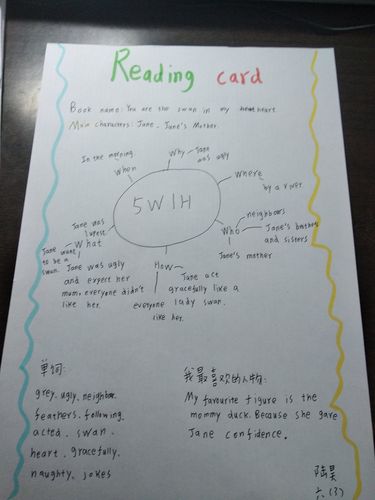 Reading card
Book name: You are the swan in my heart heart.
Main characters: Jane. Jane's Mother.
In the morning.
When
Why
Jane was ugly
Where
by a river.
5W1H
Who
neighbours
Jane's brothers and sisters
Jane's mother
Jane was
What
Jane want to be a swan.
Jane was ugly
and expect her
mum, everyone didn't
like her.
How
Jane act
gracefully like a
lady swan.
everyone
like her.
单词:
grey. ugly. neighbor.
feathers. following.
acted. swan.
heart. gracefully.
naughty. jokes
我最喜欢的人物:
My favourite figure is the
mommy duck. Because she gave
Jane confidence.
陆昊
六(3)